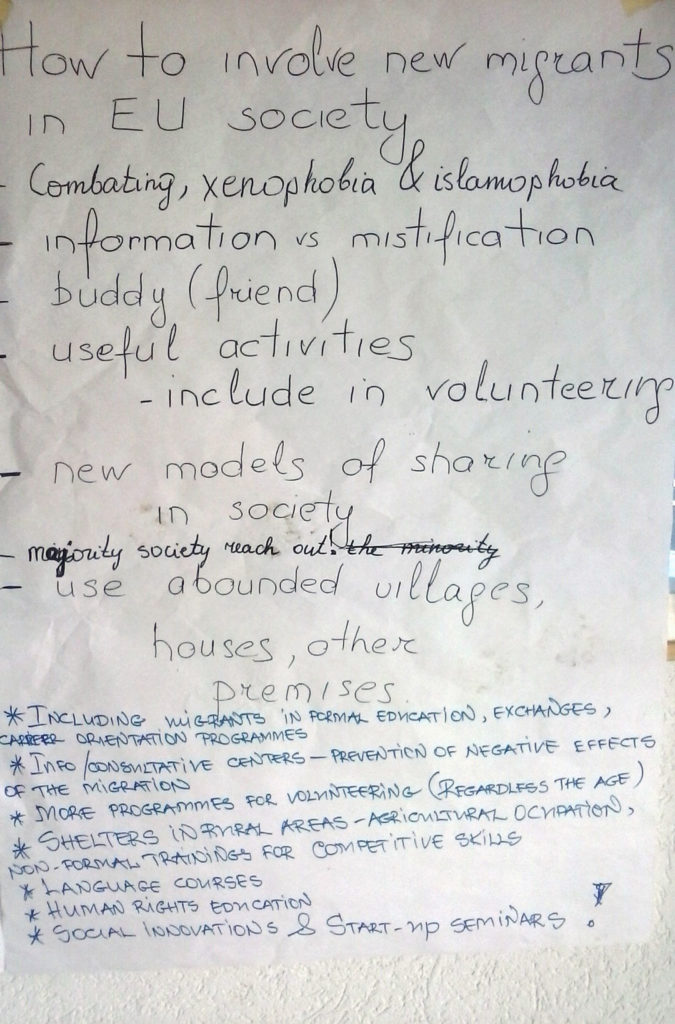 How to involve new migrants
in EU society
- Combating, xenophobia & islamophobia
- information vs mistification
- buddy (friend)
- useful activities
- include in volunteering
- new models of sharing
in society
- majority society reach out! the minority
- use abounded villages,
houses, other
premises
* INCLUDING MIGRANTS IN FORMAL EDUCATION, EXCHANGES,
CAREER ORIENTATION PROGRAMMES
* INFO/CONSULTATIVE CENTERS - PREVENTION OF NEGATIVE EFFECTS
OF THE MIGRATION
* MORE PROGRAMMES FOR VOLUNTEERING (REGARDLESS THE AGE)
* SHELTERS IN RURAL AREAS - AGRICULTURAL OCUPATION,
NON-FORMAL TRAININGS FOR COMPETITIVE SKILLS
* LANGUAGE COURSES
* HUMAN RIGHTS EDUCATION
* SOCIAL INNOVATIONS & START-UP SEMINARS !